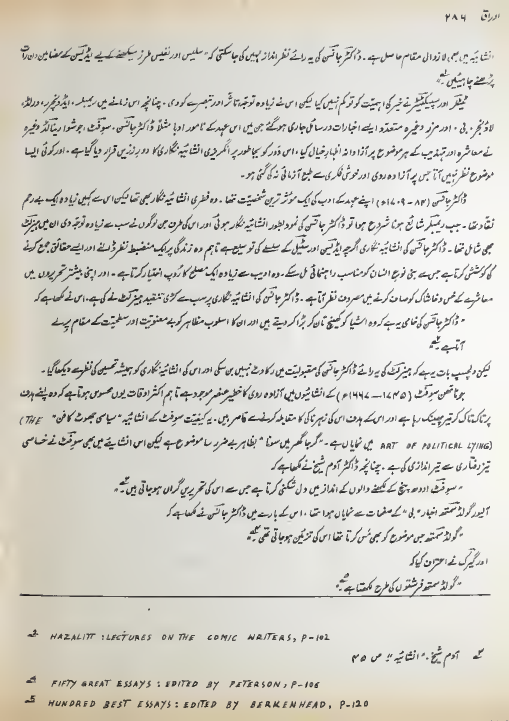 اوراق ۲۸۶
انشائیہ میں بھی لازوال مقام حاصل ہے۔ ڈاکٹر جانسن کی یہ رائے نظر انداز نہیں کی جا سکتی کہ "سلیس اور نفیس طرز سیکھنے کے لیے ایڈیسن کے مضامین دن رات
پڑھنے چاہئیں"
ٹیٹلر اور سپیکٹیٹر نے خبر کی اہمیت کو تو کم نہیں کیا لیکن اس نے زیادہ توجہ تاثر اور تبصرے کو دی۔ چنانچہ اس زمانے میں ریمبلر، ایڈونچرر، ورلڈ،
لاؤنجر، بی، اور مرر وغیرہ متعدد ایسے اخبارات و رسائل جاری ہو گئے جن میں اس عہد کے نامور ادبا مثلاً ڈاکٹر جانسن، سوفٹ، جوشوا رینالڈز وغیرہ
نے معاشرہ اور تہذیب کے ہر موضوع پر آزادانہ اظہار خیال کیا، اس دور کو بجا طور پر انگریزی انشائیہ نگاری کا دور زریں قرار دیا گیا ہے، اور کوئی ایسا
موضوع نظر نہیں آتا جس پر آزادہ روی اور خوش فکری سے طبع آزمائی نہ کی گئی ہو۔
ڈاکٹر جانسن (۸۴-۱۷۰۹ء) اپنے عہد کے ادب کی ایک مؤثر ترین شخصیت تھا۔ وہ فطری انشائیہ نگار بھی تھا لیکن اس سے کہیں زیادہ ایک بے رحم
نقاد تھا۔ جب ریمبلر شائع ہونا شروع ہوا تو ڈاکٹر جانسن کی نمود بطور انشائیہ نگار ہوئی اور اس کی طرف جن لوگوں نے سب سے زیادہ توجہ دی ان میں ہیزلٹ
بھی شامل تھا۔ ڈاکٹر جانسن کی انشائیہ نگاری اگرچہ ایڈیسن اور سٹیل کے سلسلے کی توسیع ہے تاہم وہ زندگی پر ایک منضبط نظر ڈالنے اور ایسے حقائق جمع کرنے
کی کوشش کرتا ہے جس سے بنی نوع انسان کو مناسب راہنمائی مل سکے۔ وہ ادیب سے زیادہ ایک مصلح کا روپ اختیار کرتا ہے، اور اپنی بیشتر تحریروں میں
معاشرے کے خس و خاشاک کو صاف کرنے میں مصروف نظر آتا ہے۔ ڈاکٹر جانسن کی انشائیہ نگاری پر سب سے کڑی تنقید ہیزلٹ نے کی ہے، اس نے لکھا ہے کہ
"ڈاکٹر جانسن کی خامی یہ ہے کہ وہ اشیا کو کھینچ تان کر بڑا کر دیتے ہیں اور ان کا اسلوب مظاہر کو بے معنویت اور سطحیت کے مقام پر لے
آتا ہے"
لیکن دلچسپ بات یہ ہے کہ ہیزلٹ کی یہ رائے ڈاکٹر جانسن کی مقبولیت میں رکاوٹ نہیں بن سکی اور اس کی انشائیہ نگاری کو ہمیشہ تحسین کی نظر سے دیکھا گیا۔
جوناتھن سوفٹ (۱۷۴۵—۱۶۶۷ء) کے انشائیوں میں آزادہ روی کا عنصر موجود ہے تاہم اکثر اوقات یوں محسوس ہوتا ہے کہ وہ اپنے ہدف
پر تاک تاک کر تیر پھینک رہا ہے اور اس کے ہدف اس کی زہرناکی کا مقابلہ کرنے سے قاصر ہیں۔ یہ کیفیت سوفٹ کے انشائیہ "سیاسی جھوٹ کا فن" (THE
ART OF POLITICAL LYING) میں نمایاں ہے۔ "گرجا گھر میں سونا" بظاہر بے ضرر سا موضوع ہے لیکن اس انشائیے میں بھی سوفٹ نے خاصی
تیز رفتاری سے تیر اندازی کی ہے۔ چنانچہ ڈاکٹر آدم شیخ نے لکھا ہے کہ
"سوفٹ اودھ پنچ کے لکھنے والوں کے انداز میں دل شکنی کرتا ہے جس سے اس کی تحریریں گراں ہو جاتی ہیں"
آلیور گولڈ سمتھ اخبار "بی" کے صفحات سے نمایاں ہوا تھا، اس کے بارے میں ڈاکٹر جانسن نے لکھا ہے کہ
"گولڈ سمتھ جس موضوع کو بھی مس کرتا تھا اس کی تزئین ہو جاتی تھی"
اور گیرک نے اعتراف کیا کہ
"گولڈ سمتھ فرشتوں کی طرح لکھتا ہے"
HAZALITT : LECTURES ON THE COMIC WRITERS, P-102
۳ آدم شیخ۔ "انشائیہ" ص ۳۵
۴ FIFTY GREAT ESSAYS : EDITED BY PETERSON, P-106
۵ HUNDRED BEST ESSAYS : EDITED BY BERKENHEAD, P-120